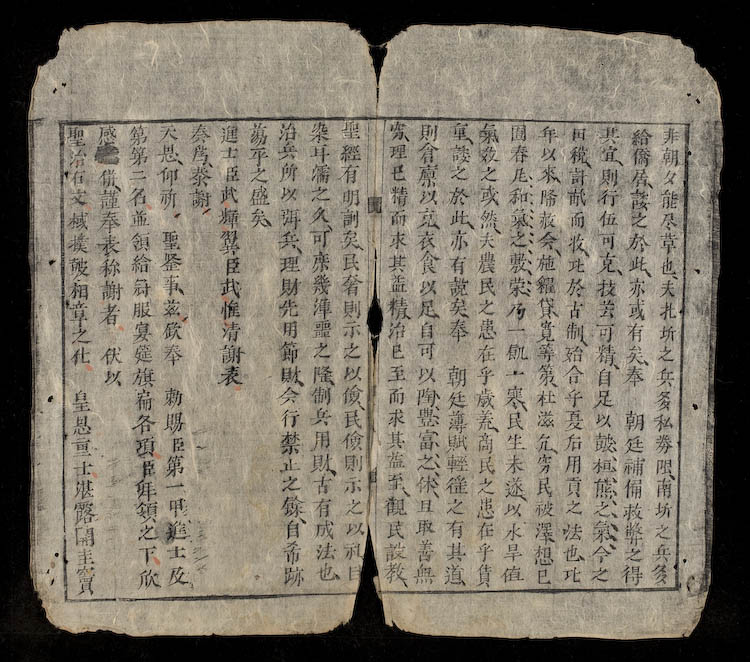 非朝夕能尽草也夫扎圻之兵多私券限南圻之兵多
給僑居設之於此亦或有矣奉 朝廷補偹救弊之得
其宜則行伍可克技芸可精自足以皷桓熊之氣今之
田税計畝而收此於古制始合乎夏后用貢之法也比
年以來降赦会施糶貸寛等第杜滋冗穷民被澤想已
囿春风和氣之敷荣乃一飢一寒民生未遂以水旱值
氣数之或然夫農民之患在乎歲荒商民之患在乎貨
重設之於此亦有説矣奉 朝廷薄賦輕徭之有其道
則倉廪以克衣食以足自可以陶豐富之休且取善無
窮理已精而求其益精治已至而求其益至觀民設教
聖經有明訓矣民奢則示之以儉民儉則示之以礼目
染耳濡之久可庶幾渾噩之隆制兵用財古有成法也
治兵所以弭兵理財先用節財会行禁止之餘自希跡
蕩平之盛矣
進士臣武頻巽臣武惟清謝表
奏爲奏謝
天恩仰祈 聖鉴事茲欽奉 勅賜臣第一甲進士及
第第二名並領給冠服宴筵旗匾各項臣拜領之下欣
感 謹奉表称謝者 伏以
聖治在文棫撲皷相章之化 皇恩重士湛露闡圭竇